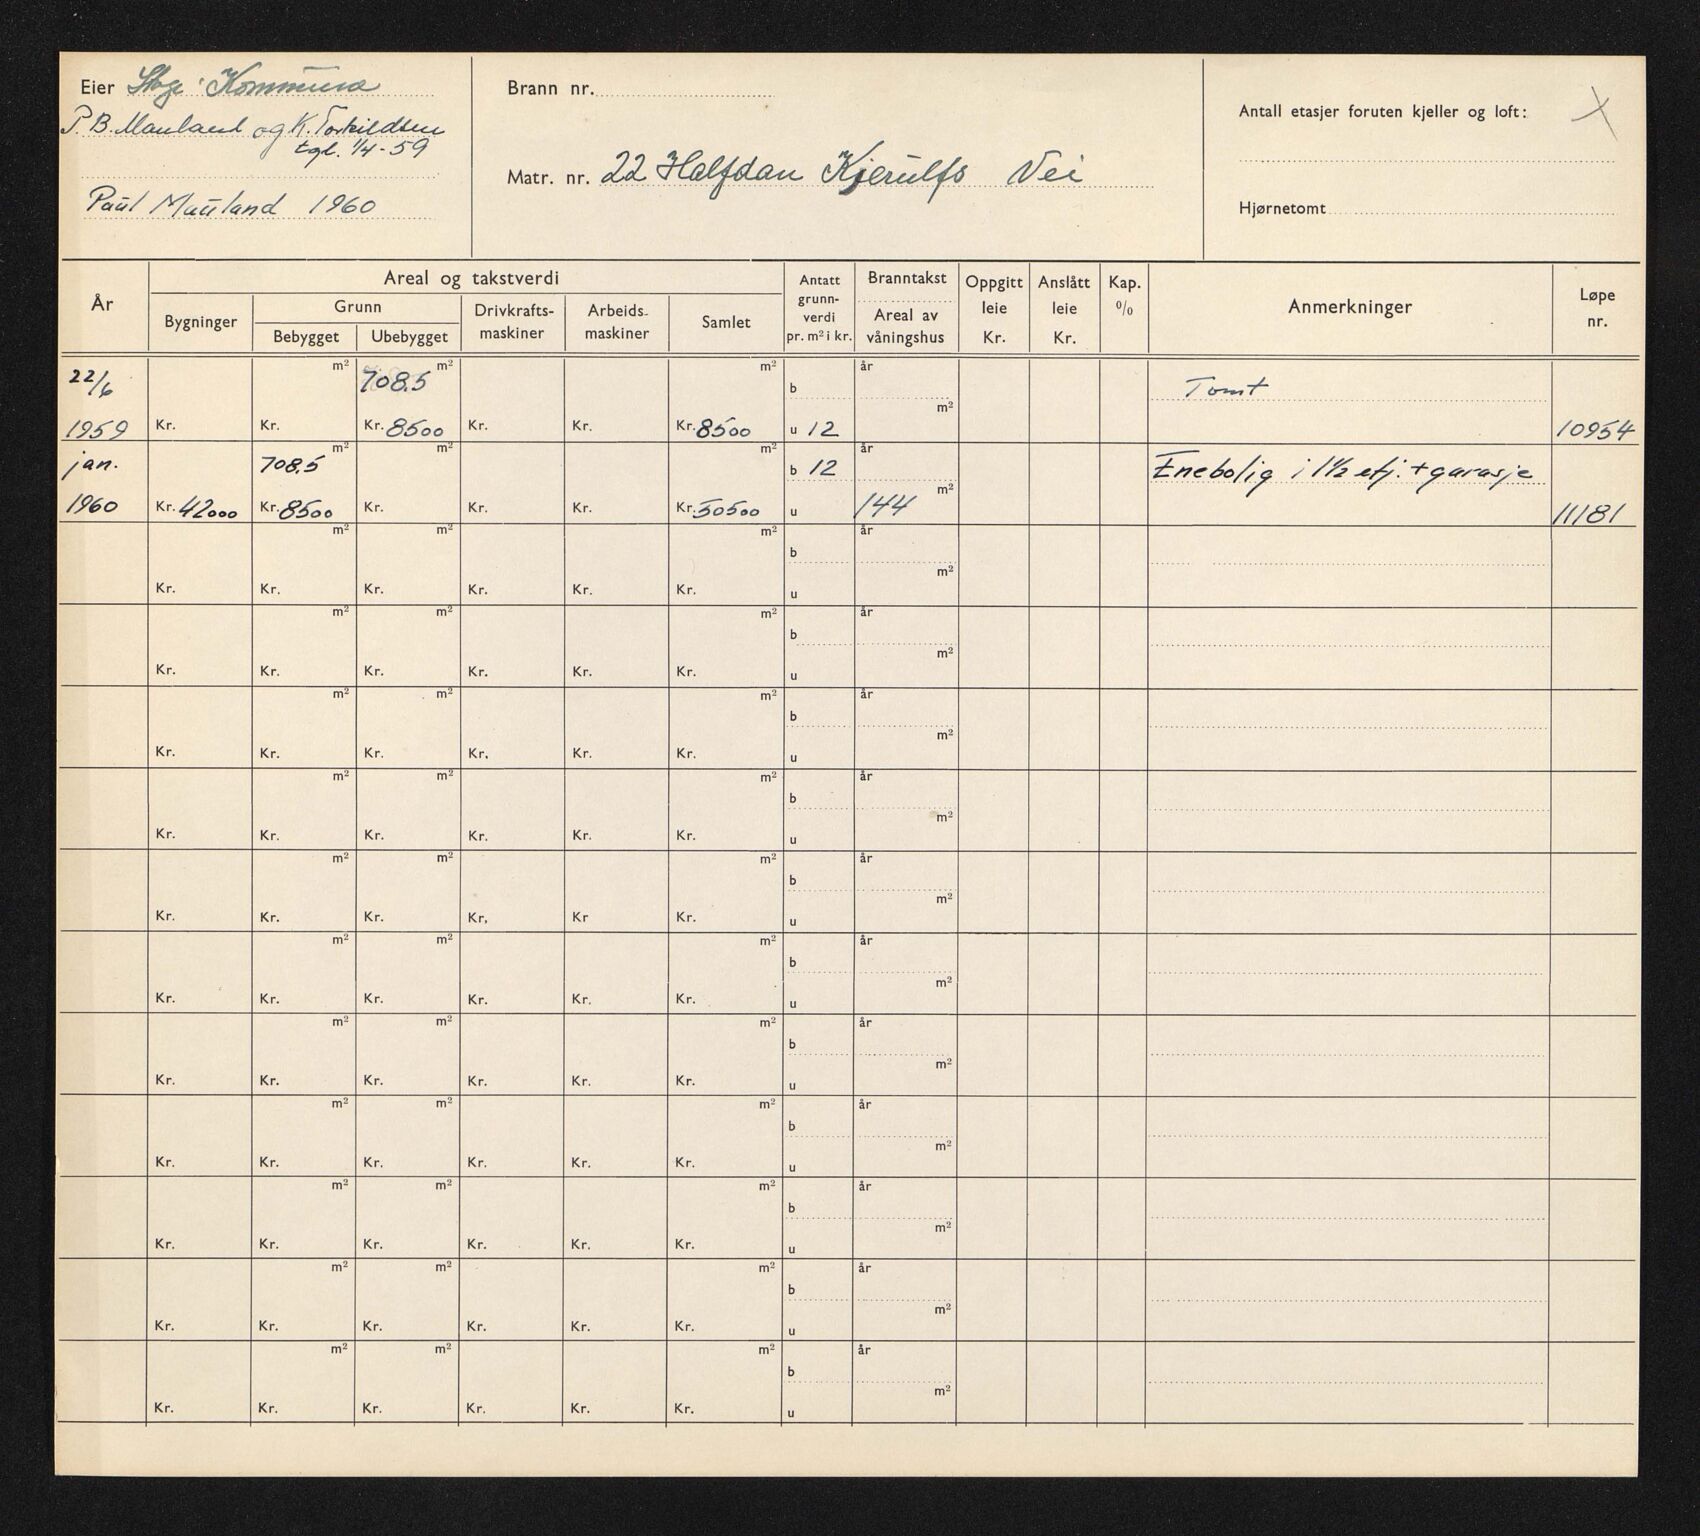 Eier Stvgr. Kommune
P. B. Mauland og K. Torkildsen
tgl. 1/4-59
Paul Mauland 1960
Brann nr.
Matr. nr. 22 Halfdan Kjerulfs Vei
Antall etasjer foruten kjeller og loft:
Hjørnetomt
År
Areal og takstverdi
Bygninger
Grunn
Bebygget
Ubebygget
Drivkrafts-
maskiner
Arbeids-
maskiner
Samlet
Antatt
grunn-
verdi
pr. m² i kr.
Branntakst
Areal av
våningshus
Oppgitt
leie
Kr.
Anslått
leie
Kr.
Kap.
%
Anmerkninger
Løpe
nr.
m² m² m² år
22/6 708.5 b Tomt
m²
1959 Kr. Kr. Kr. 8500 Kr. Kr. Kr. 8500 u 12 10954
m² m² m² år
jan. 708.5 b 12 Enebolig i 1 1/2 etj. + garasje
m²
1960 Kr. 42000 Kr. 8500 Kr. Kr. Kr. Kr. 50500 u 144 11181
m² m² m² år
b
m²
Kr. Kr. Kr. Kr. Kr. Kr. u
m² m² m² år
b
m²
Kr. Kr. Kr. Kr. Kr. Kr. u
m² m² m² år
b
m²
Kr. Kr. Kr. Kr. Kr. Kr. u
m² m² m² år
b
m²
Kr. Kr. Kr. Kr. Kr. Kr. u
m² m² m² år
b
m²
Kr. Kr. Kr. Kr. Kr Kr. u
m² m² m² år
b
m²
Kr. Kr. Kr. Kr. Kr. Kr. u
m² m² m² år
b
m²
Kr. Kr. Kr. Kr. Kr. Kr. u
m² m² m² år
b
m²
Kr. Kr. Kr. Kr. Kr. Kr. u
m² m² m² år
b
m²
Kr. Kr. Kr. Kr. Kr. Kr. u
m² m² m² år
b
m²
Kr. Kr. Kr. Kr. Kr. Kr. u
m² m² m² år
b
m²
Kr. Kr. Kr. Kr. Kr. Kr. u